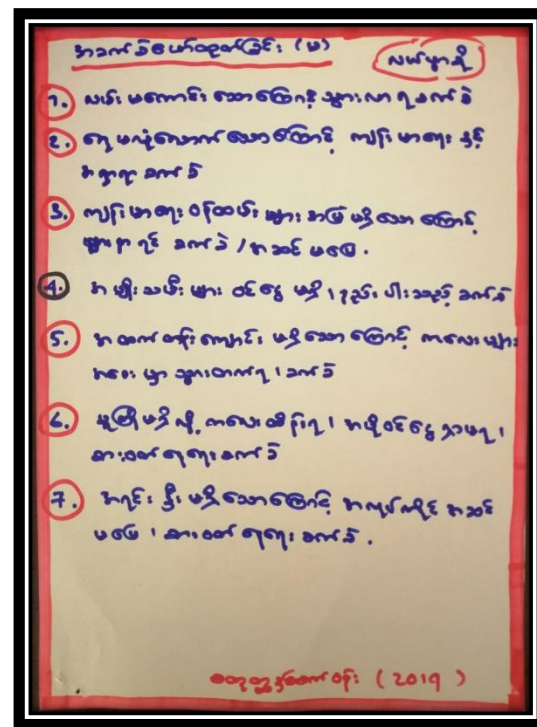 အခက်ခဲဖော်ထုတ်ခြင်း (မ)
လယ်မှာရှိ
1. လမ်း မကောင်း သောကြောင့် သွားလာ ရ ခက်ခဲ
2. ရေ မလုံလောက် သောကြောင့် ကျန်းမာရေး နှင့်
ခက်ခဲ
3. ကျန်းမာရေး ဝန်ထမ်း များ အမြဲ မရှိသော ကြောင့်
ဖျားနာ ရင် ခက်ခဲ / အဆင် မပြေ .
4. အမျိုးသမီး များ ဝင်ငွေ မရှိ ၊ နည်း ပါးသည့် ခက်ခဲ
5. အထက်တန်း ကျောင်း မရှိသော ကြောင့် ကလေးများ
အဝေး မှာ သွားတက်ရ ၊ ခက်ခဲ
6. မူကြို မရှိလို့ ကလေး ထိန်းရ ၊ အပိုဝင်ငွေ ရှာမရ ၊
စားဝတ် ရေးခက်ခဲ
7. အရင်း နှီး မရှိသောကြောင့် အလုပ်ကိုင် အဆင်
မပြေ ၊ စားဝတ် ရေး ခက်ခဲ .
(2019)